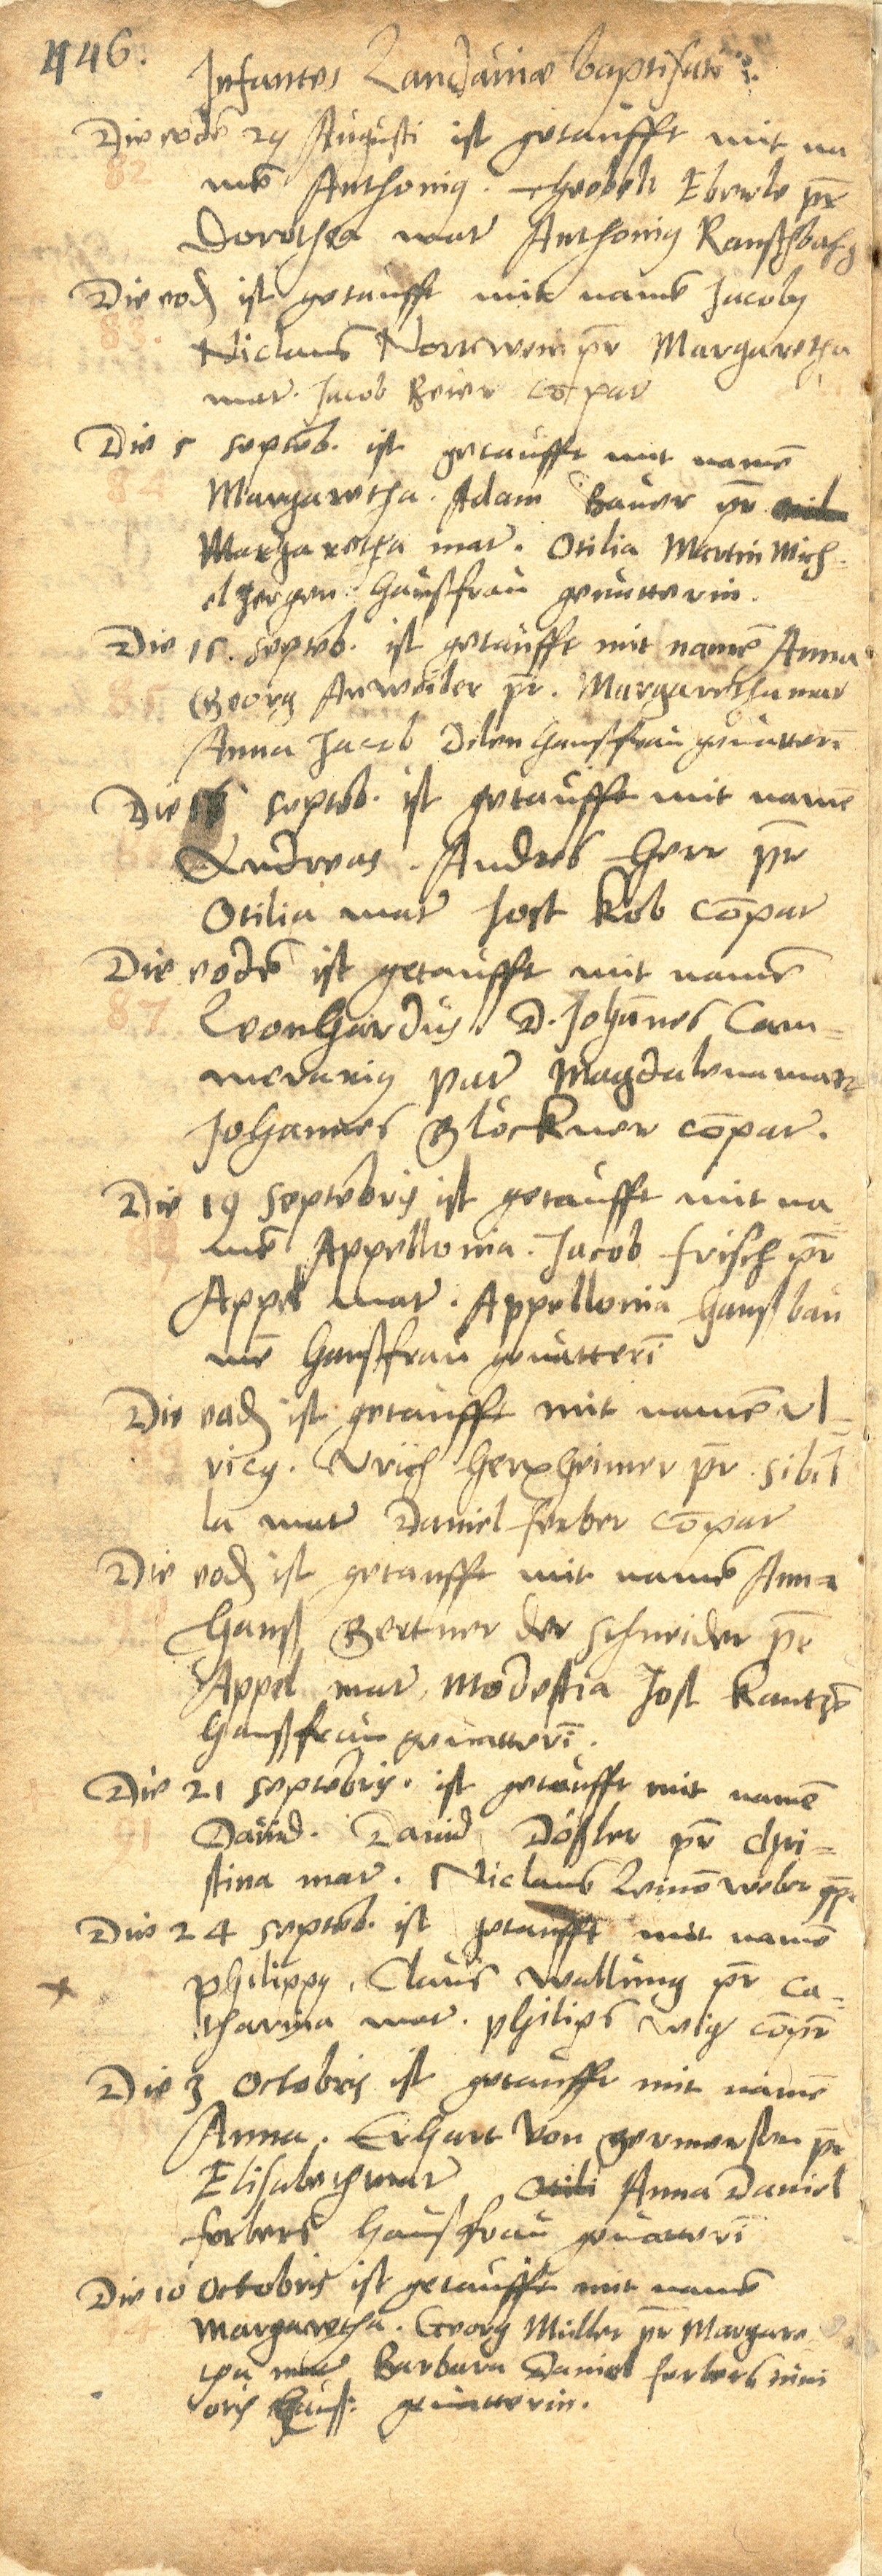 446.
Infantes Landauiae baptisati
Die eodē 29 Augusti ist getaufft mit na
82
mē Anthoniq. Eberle pr̄
Dorothea mat Anthoniq
Die eod ist getaufft mit namē Jacobq
83.
Niclaus pr̄ Margaretha
mat. Jacob Beier cōpar
Die 5 septēb. ist getaufft mit namē
84
Margaretha. Adam Bauer pr̄
Margaretha mat. Otilia Martin Mich-
el haußfrau geuatterin.
Die 15. septēb. ist getaufft mit namē Anna
85
Georg Anweiler pr̄. Margaretha mat
Anna Jacob haußfrau geuatterī
Die 16 septēb. ist getaufft mit namē
Andreas. Andres Herr pr̄
Otilia mat Jost Kob cōpar
Die eodē ist getaufft mit namē
87
Leonhardus. D. Johānes Cam-
merariq pat Magdalena mat
Johannes Glöckner cōpar.
Die 19 septēbris ist getaufft mit na
mē Appellonia. Jacob Frisch pr̄
Appel mat. Appellonia Hanß bau
mē haußfrau geuatterī
Die eod ist getaufft mit namē vl-
ricq. Vrich Herxheimer pr̄. Sibil
la mat Daniel Ferber cōpar
Die eod ist getaufft mit namē Anna
Hanß Gertner der schneider pr̄
Appel mat, Modestia Jost Kantzē
haußfrau geuatterī.
Die 21 septēbris. ist getaufft mit namē
91
Dauid. Dauid Dößler pr̄ Chri-
stina mat. Niclaus Leinēweber
Die 24 septēb. ist getaufft mit namē
philippq. Claus Wallung pr̄ Ca-
tharina mat. philips cōpr̄
Die 3 Octobris ist getaufft mit namē
Anna. Erhart von pr̄
Elisabeth mat Anna Daniel
ferbers haußfrau geuatterī
Die 10 Octobris ist getaufft mit namē
Margaretha. Georg Müller pr̄ Margare
tha mat Barbara Daniel ferbers mini
oris hauß: geuatterin.